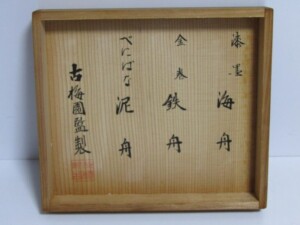 漆墨 海舟
金巻 鉄舟
べにばな 泥舟
古梅園監製